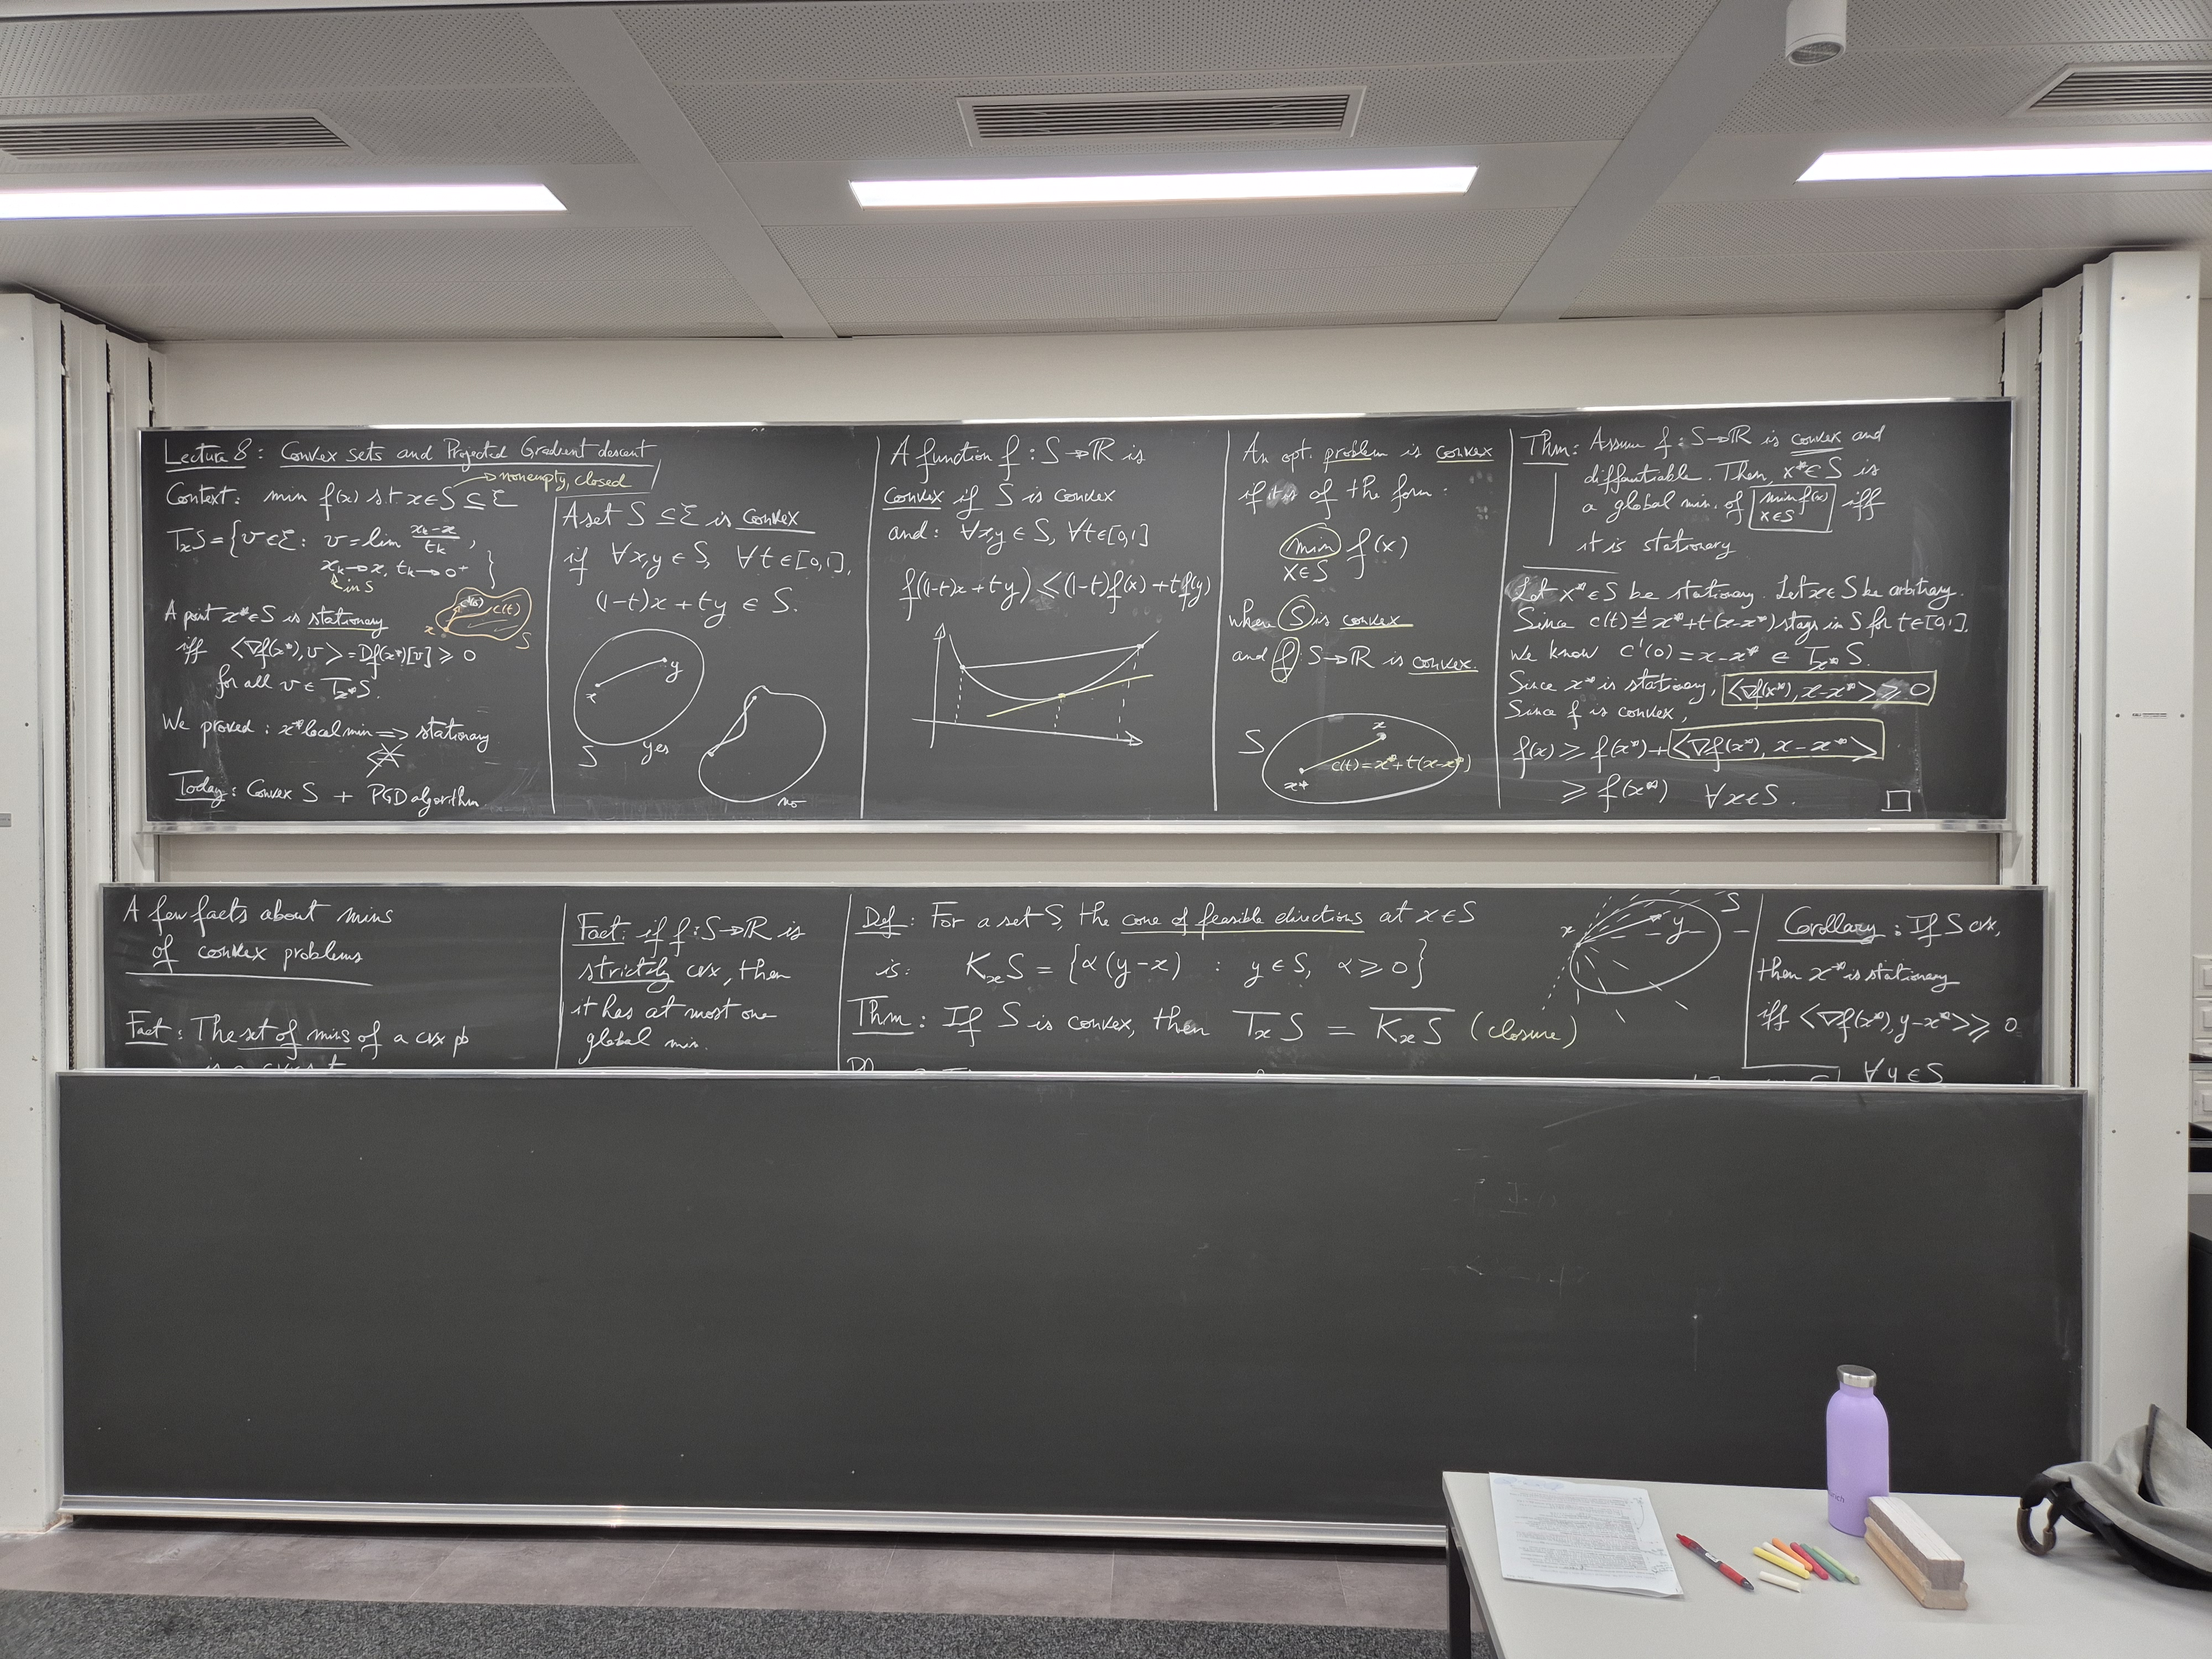 Lecture 8: Convex sets and Projected Gradient descent
→ nonempty, closed
Context: min f(x) s.t. x∈S ⊆ ℰ
TₓS = {v∈ℰ: v = lim (xₖ-x)/tₖ,
xₖ→x, tₖ→0⁺ }
in S
A point x*∈S is stationary
iff ⟨∇f(x*), v⟩ = Df(x*)[v] ⩾ 0
for all v ∈ Tₓ*S.
c'(0) c(t)
x S
We proved: x* local min ⟹ stationary
Today: Convex S + PGD algorithm
A set S ⊆ ℰ is convex
if ∀x,y ∈ S, ∀t∈[0,1],
(1-t)x + ty ∈ S.
x y
S yes
no
A function f: S→ℝ is
convex if S is convex
and: ∀x,y ∈ S, ∀t∈[0,1]
f((1-t)x + ty) ⩽ (1-t)f(x) + tf(y)
An opt. problem is convex
if it is of the form:
min f(x)
x∈S
where S is convex
and f: S→ℝ is convex.
S x
c(t) = x*+t(x-x*)
x*
Thm: Assume f: S→ℝ is convex and
diffentiable. Then, x*∈S is
a global min. of min f(x) x∈S iff
it is stationary
Let x*∈S be stationary. Let x∈S be arbitrary.
Since c(t) ≜ x*+t(x-x*) stays in S for t∈[0,1],
we know c'(0) = x-x* ∈ Tₓ*S.
Since x* is stationary, ⟨∇f(x*), x-x*⟩ ⩾ 0
Since f is convex,
f(x) ⩾ f(x*) + ⟨∇f(x*), x-x*⟩
⩾ f(x*) ∀x∈S. □
A few facts about mins
of convex problems
Fact: The set of mins of a cvx pb
Fact: if f: S→ℝ is
strictly cvx, then
it has at most one
global min.
Def: For a set S, the cone of feasible directions at x∈S
is: KₓS = {α(y-x) : y∈S, α⩾0}
Thm: If S is convex, then TₓS = K̅ₓ̅S̅ (closure)
x y S
Corollary: If S cvx,
then x* is stationary
iff ⟨∇f(x*), y-x*⟩ ⩾ 0
∀y∈S